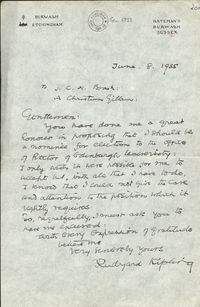 BURWASH
ETCHINGHAM
BATEMAN'S
BURWASH
SUSSEX
June. 8. 1935
To J. C. W. Bonsh.
A Christian Gillan.
Gentlemen:
You have done me a great
honour in proposing that I should be
a nominee for election to the office
of Rector of Edinburgh University.
I only wish it were possible for me to
accept but, with all that I have to do,
I know that I could not give the care
and attention to the position which it
rightly requires.
So, regretfully, I must ask you to
have me excused.
With every expression of gratitude
believe me
Very sincerely yours
Rudyard Kipling